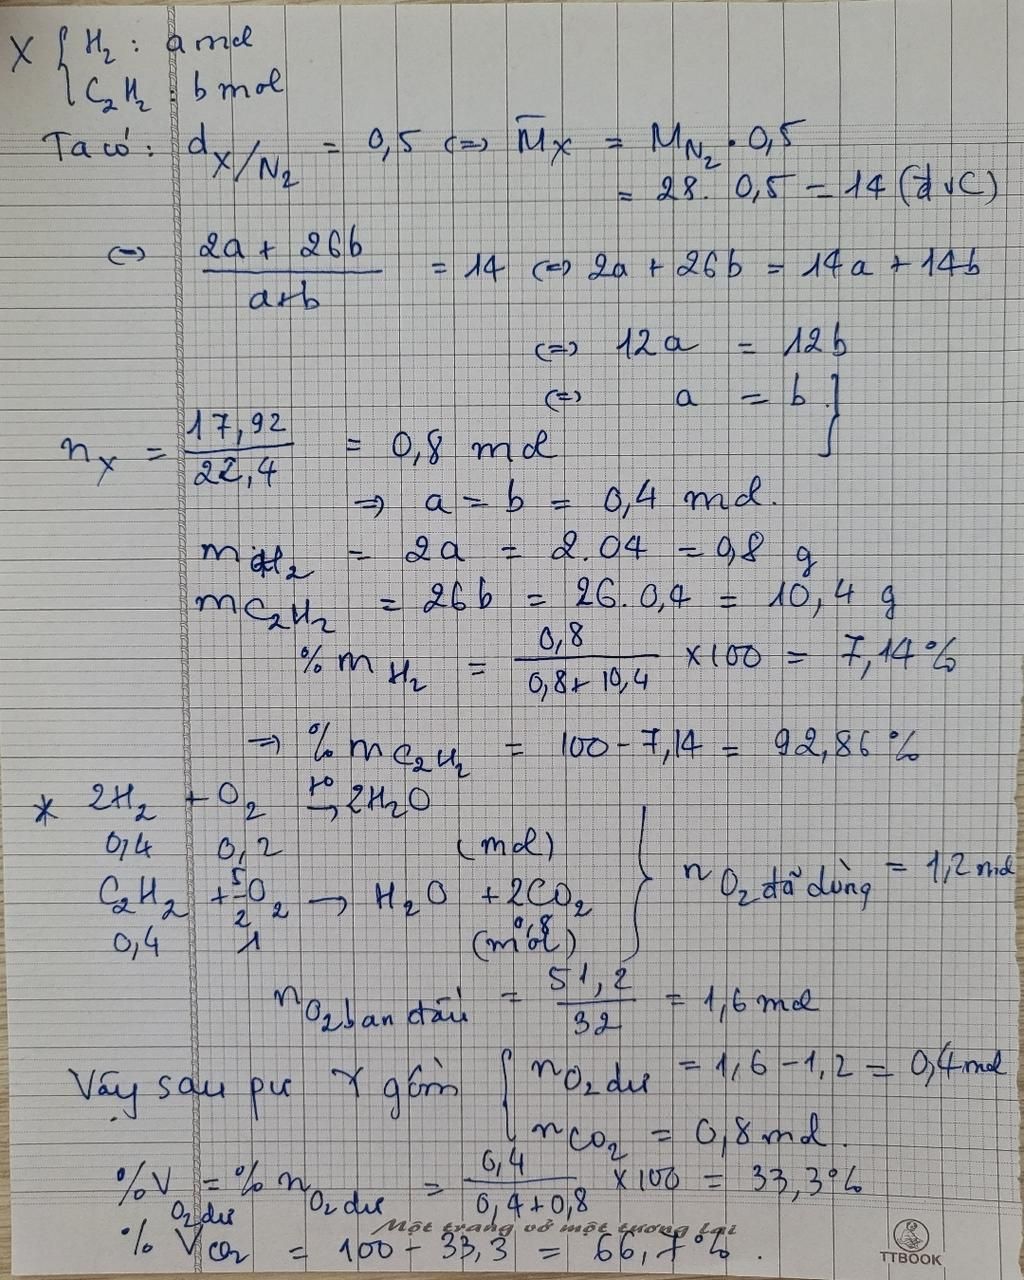 X { H₂ : a mol
C₂H₂ : b mol
Ta có : d X/N₂ = 0,5 <=> M̄x = M N₂ . 0,5
= 28. 0,5 = 14 (đvC)
<=> (2a + 26b)/(a+b) = 14 <=> 2a + 26b = 14a + 14b
<=> 12a = 12b
<=> a = b }
nₓ = 17,92/22,4 = 0,8 mol
=> a = b = 0,4 mol.
m H₂ = 2a = 2.04 = 0,8 g
m C₂H₂ = 26b = 26.0,4 = 10,4 g
% m H₂ = 0,8/(0,8+10,4) ×100 = 7,14%
=> % m C₂H₂ = 100 - 7,14 = 92,86 %
* 2H₂ + O₂ –t°→ 2H₂O
0,4 0,2 (mol)
C₂H₂ + 5/2 O₂ → H₂O + 2CO₂ } n O₂ đã dùng = 1,2 mol
0,4 1 0,8 (mol)
n O₂ ban đầu = 51,2/32 = 1,6 mol
Vậy sau pư Y gồm { n O₂ dư = 1,6 - 1,2 = 0,4 mol
n CO₂ = 0,8 mol.
% V O₂ dư = % n O₂ dư = 0,4/(0,4+0,8) ×100 = 33,3%
Một trang vở một tương lai
% V CO₂ = 100 - 33,3 = 66,7%.
TTBOOK